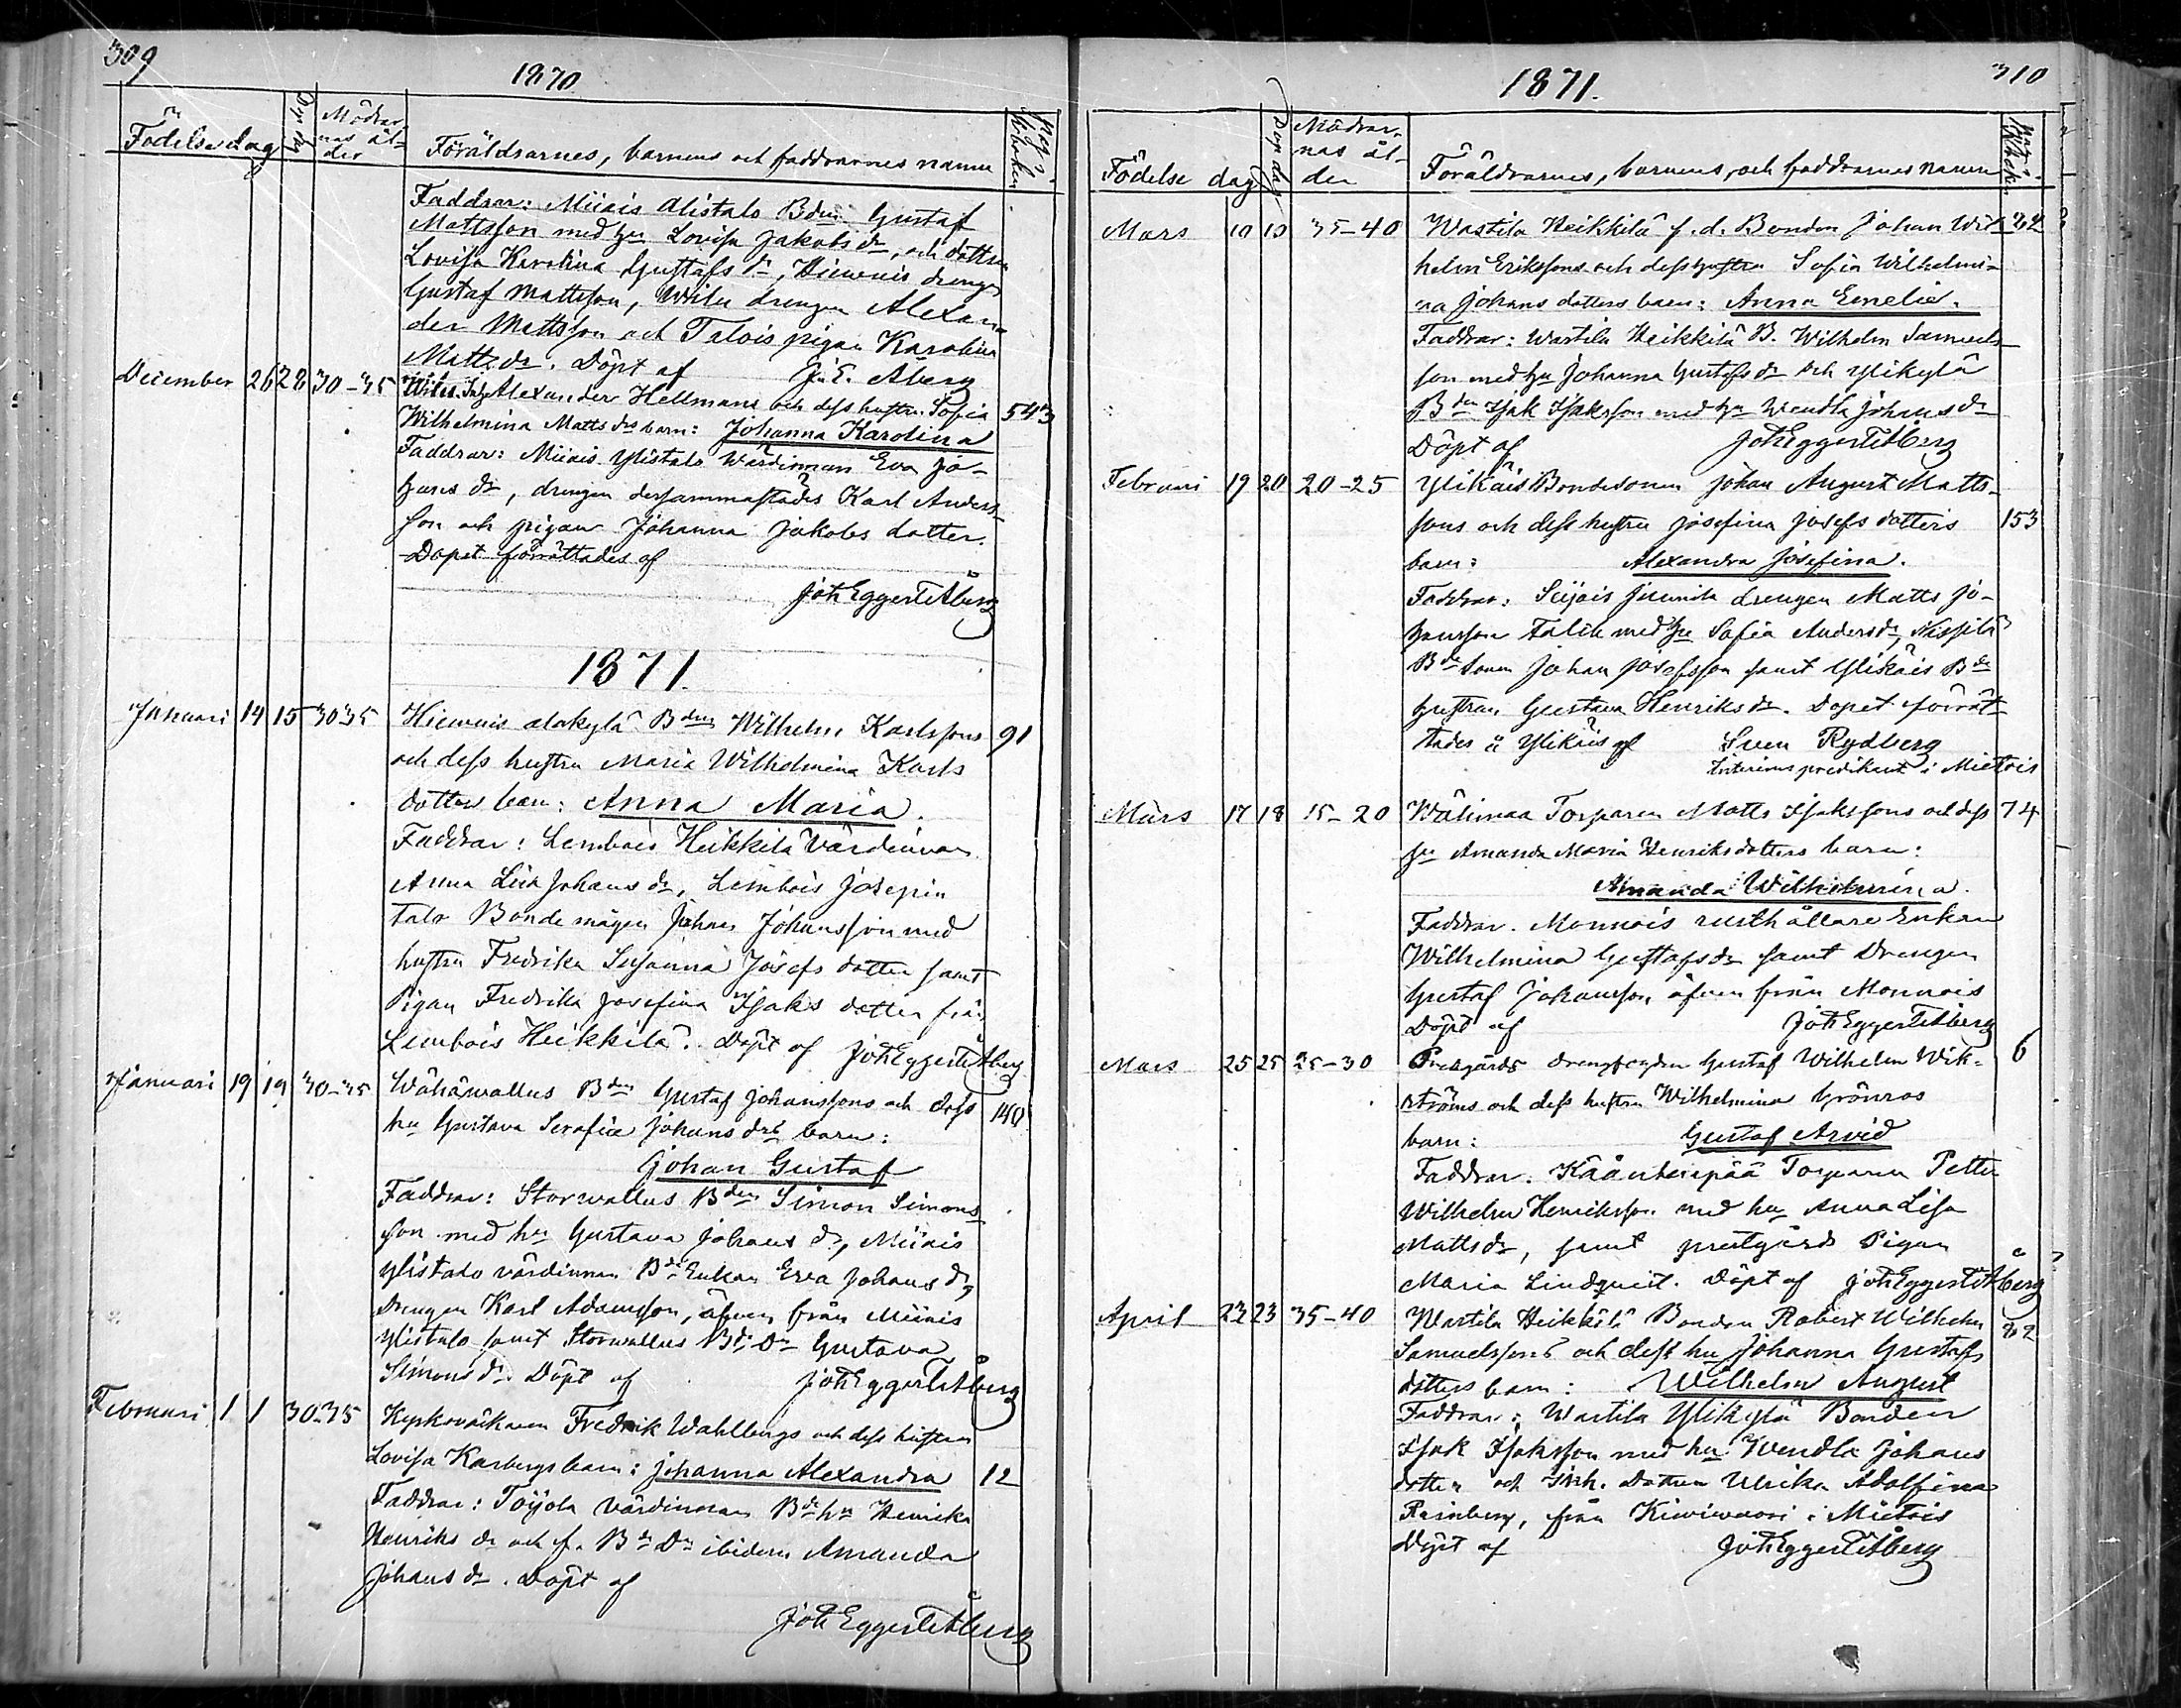 309
1870.
Födelse dag
Dop dag
Mödrar-
nas ål-
der
Föräldrarnes, barnens och faddrarnes namn
Pag. i
Faddrar: Miiais Alistalo Bdn Gustaf
Mattsson med hu Lovisa Jakobs dr, och dottren
Lovisa Karolina Gustafs dr, Hiewais drengen
Gustaf Mattsson, drengen Alexan-
der Mattsson och Talois pigan Karolina
Matts dr. Döpt af J. E. Åberg
December 26 28 30-35 Alexander Hellmans och dess hustru Sofia 543
Wilhelmina Matts drs barn: Johanna Karolina
Faddrar: Miiais Ylistalo Wärdinnan Eva Jo-
hans dr, drengen dersammastädes Karl Anders-
son och pigan Johanna Jakobs dotter.
Dopet förrättades af
Joh Eggert Åberg
1871.
Januari 14 15 30 35 Hiewais alakylä Bdns Wilhelm Karlssons 91
och dess hustru Maria Wilhelmina Karls
dotters barn: Anna Maria.
Faddrar: Lembois Heikkilä Värdinnan
Anna Lisa Johans dr, Lembois Josepin
talo Bonde mågen Johan Johansson med
hustru Fredrika Susanna Josefs dotter samt
Pigan Fredrika Josefina Isaks dotter från
Lembois Heikkilä. Döpt af Joh Eggert Åberg
Januari 19 19 30-35 Wähäwallus Bdns Gustaf Johanssons och dess 140
hu Gustava Serafia Johans drs barn:
Johan Gustaf
Faddrar: Storwallus Bdn Simon Simons-
son med hu Gustava Johans dr, Miiais
Ylistalo värdinnan Bde Enkan Eva Johans dr,
Drengen Karl Adamsson, äfven från Miiais
Ylistalo samt Storwallus Bde Dr Gustava
Simons dr. Döpt af Joh Eggert Åberg
Februari 1 1 30-35 Kyrkoväktaren Fredrik Wahlbergs och dess hustrus
Lovisa Karbergs barn: Johanna Alexandra 12
Faddrar: Toijola värdinnan Bde hu Henrika
Henriks dr och f. Bde Dr ibidem Amanda
Johans dr. Döpt af
Joh Eggert Åberg
310
1871.
Födelse dag
Dop dag
Mödrar-
nas ål-
der
Föräldrarnes, barnens, och faddrarnes namn
Mars 10 10 35-40 Wastila Heikkilä f. d. Bonden Johan Wil- 32
helm Erikssons och dess hustru Sofia Wilhelmi-
na Johans dotters barn: Anna Emelie.
Faddrar: Wartila Heikkilä B. Wilhelm Samuels-
son med hu Johanna Gustafs dr och Ylikylä
Bden Isak Isaksson med hu Wendla Johans dr
Döpt af Joh Eggert Åberg
Februari 19 20 20-25 Ylikäis Bondesonen Johan August Matts-
sons och dess hustru Josefina Josefs dotters 153
barn: Alexandra Josefina.
Faddrar: drengen Matts Jo-
hansson Talik med hu Sofia Anders dr,
Bde Sonen Johan Josefsson samt Ylikäis Bde
hustrun Gustava Henriks dr. Dopet förrät-
tades å Ylikäis af Sven Rydberg
Interims predikant i Mietois
Mars 17 18 15-20 Wälimaa Torparen Matts Isakssons och dess 74
hu Amanda Maria Henriksdotters barn:
Amanda Wilhelmina.
Faddrar. Monnois rusthållare Enkan
Wilhelmina Gustafs dr samt Drengen
Gustaf Johansson, äfven från Monnois
Döpt af Joh Eggert Åberg
Mars 25 25 25-30 Prestgårds Gustaf Wilhelm Wik- 6
ströms och dess hustru Wilhelmina Grönros
barn: Gustaf Arvid
Faddrar. Torparen Petter
Wilhelm Henriksson med hu Anna Lisa
Matts dr, samt prestgårds Pigan
Maria Lindqvist. Döpt af Joh Eggert Åberg
April 22 23 35-40 Wartila Heikkilä Bonden Robert Wilhelm 32
Samuelssons och dess hu Johanna Gustafs
dotters barn: Wilhelm August
Faddrar: Wartila Ylikylä Bonden
Isak Isaksson med hu Wendla Johans
dotter och Inh. Dottren Ulrika Adolfina
Reinberg, från Kiwiwuori i Mietois
Döpt af Joh Eggert Åberg